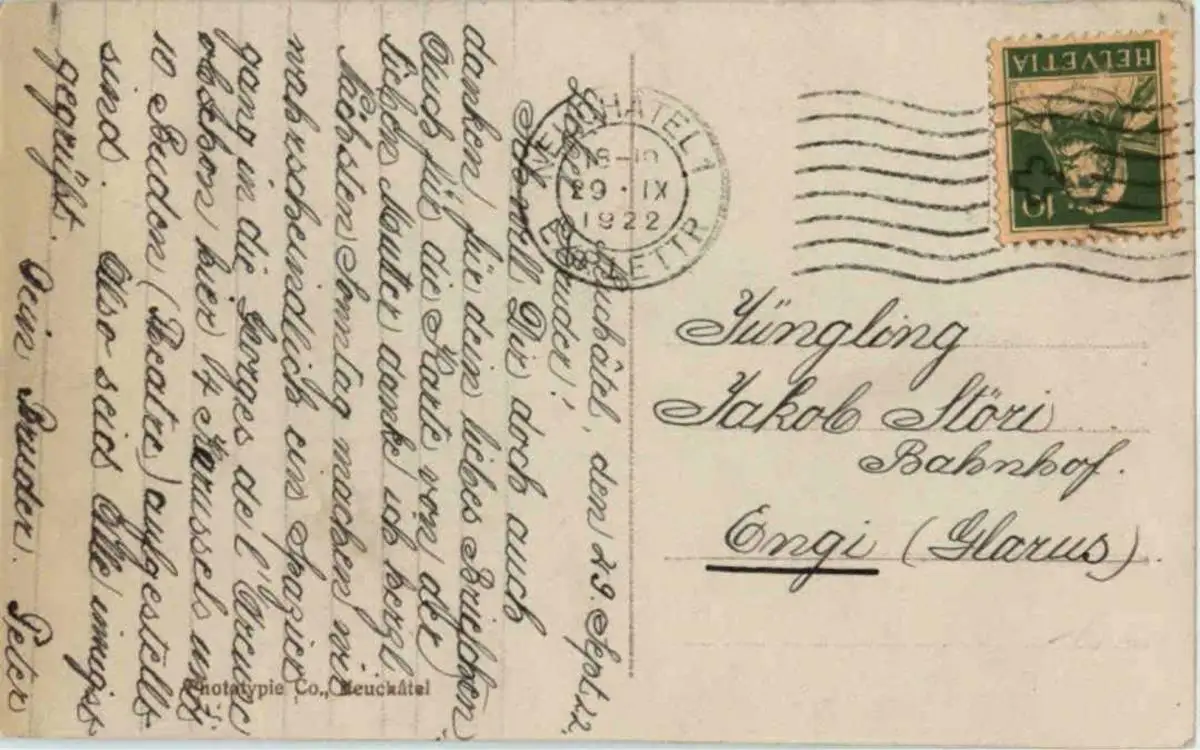 Neuchâtel, den 29. Sept. 22.
Lieber Bruder!
Schnell Dir doch auch
danken für dein liebes Briefchen.
Auch für die Karte von der
lieben Mutter danke ich herzl.
Nächsten Sonntag machen wir
wahrscheindlich ein Spazier
gang in die Gorges de l'Areuse
obschon hier 4 Karussels und
10 Buden (Theatre) aufgestellt
sind. Also seid Alle innigst
gegrüßt.
Dein Bruder. Peter
Phototypie Co., Neuchâtel
NEUCHÂTEL 1
18-19
29·IX
1922
LETTR
HELVETIA
10
Jüngling
Jakob Störi
Bahnhof.
Engi (Glarus)